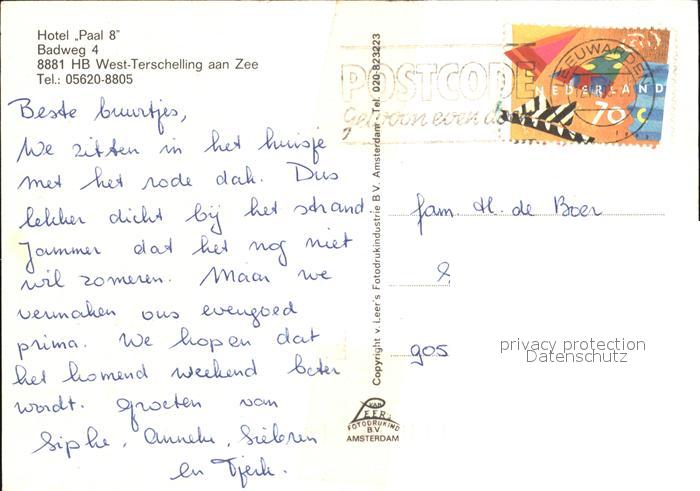 Hotel „Paal 8"
Badweg 4
8881 HB West-Terschelling aan Zee
Tel.: 05620-8805
Beste buurtjes,
We zitten in het huisje
met het rode dak. Dus
lekker dicht bij het strand.
Jammer dat het nog niet
wil zomeren. Maar we
vermaken ons evengoed
prima. We hopen dat
het komend weekend beter
wordt. Groeten van
Sipke, Anneke, Siebren
en Tjerk.
Copyright v. Leer's Fotodrukindustrie B.V. Amsterdam Tel. 020-823223
VAN
LEER'S
FOTODRUKIND
B.V.
AMSTERDAM
POSTCODE
Gewoon even d
LEEUWARDEN
NEDERLAND
70 c
fam. H. de Boer
905
privacy protection
Datenschutz